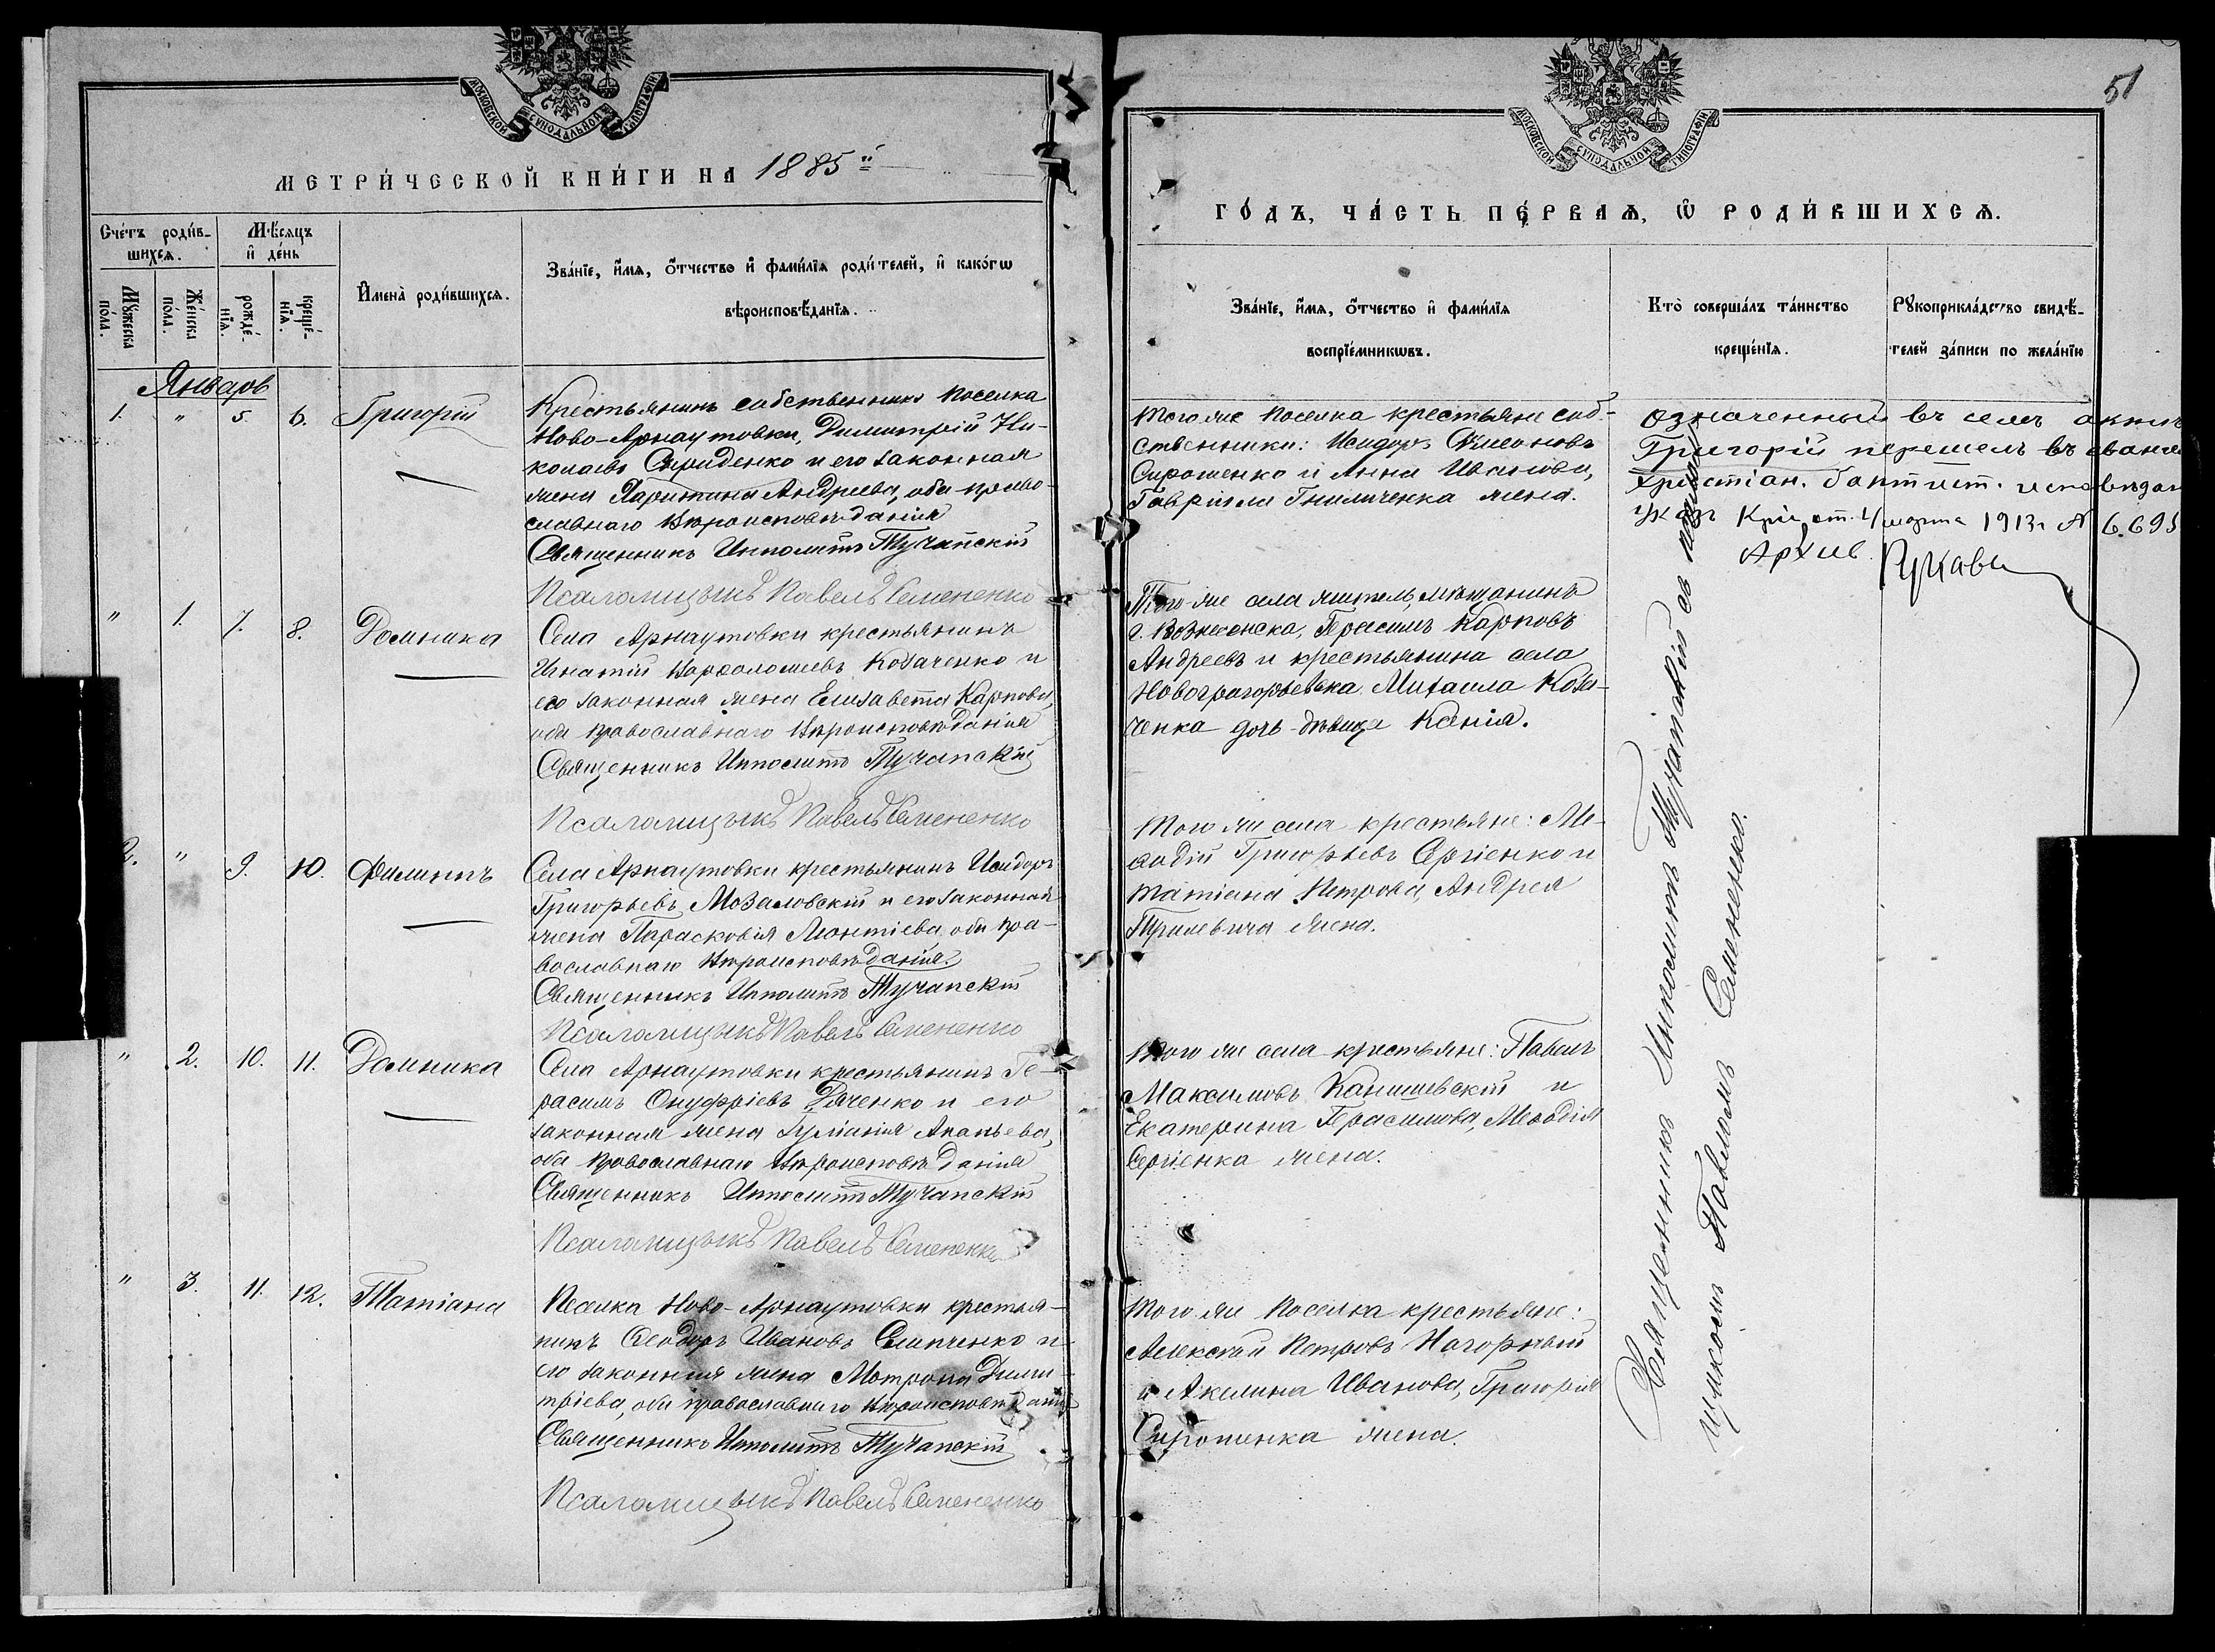 МОСКОВСКОЙ СѴНОДАЛЬНОЙ ТИПОГРАФІИ
МЕТРИ́ЧЕСКОЙ КНИ́ГИ НА 1885й
Сче́тъ роди́в-
шихсѧ.
Мѣ́сѧцъ
и҆ де́нь
Мꙋ́жеска
по́ла.
Же́нска
по́ла.
рожде́-
нїѧ.
креще́-
нїѧ.
И҆мена̀ роди́вшихсѧ.
Зва́нїе, и҆́мѧ, ѻ҆́тчество и҆ фами́лїѧ роди́телей, и҆ како́гѡ
вѣроисповѣ́данїѧ.
Январь
1. " 5 6. Григорій
Крестьянинъ собственникъ поселка
Ново-Арнаутовки, Димитрій Ни-
колаевъ Спириденко и его законная
жена Харитина Андреева, оба право-
славнаго вѣроисповѣданія
Священникъ Ипполитъ Тучапскій
Псаломщикъ Павелъ Семененко
" 1. 7. 8. Домника
Села Арнаутовки крестьянинъ
Игнатій Варѳоломеевъ Кобаченко и
его законная жена Елизавета Карпова,
оба православнаго вѣроисповѣданія
Священникъ Ипполитъ Тучапскій
Псаломщикъ Павелъ Семененко
2. " 9. 10. Филиппъ
Села Арнаутовки крестьянинъ Исидоръ
Григорьевъ Мозаловскій и его законная
жена Парасковія Леонтіева, оба пра-
вославнаго вѣроисповѣданія.
Священникъ Ипполитъ Тучапскій
Псаломщикъ Павелъ Семененко
" 2. 10. 11. Домника
Села Арнаутовки крестьянинъ Ге-
расимъ Онуфріевъ Дяченко и его
законная жена Іуліанія Ананьева,
оба православнаго вѣроисповѣданія
Священникъ Ипполитъ Тучапскій
Псаломщикъ Павелъ Семененко
" 3. 11. 12. Татіана
Поселка Ново-Арнаутовки крестья-
нинъ Ѳеодоръ Ивановъ и
его законная жена Матрона Дими-
тріева, оба православнаго вѣроисповѣданія
Священникъ Ипполитъ Тучапскій
Псаломщикъ Павелъ Семененко
51
МОСКОВСКОЙ СѴНОДАЛЬНОЙ ТИПОГРАФІИ
ГО́ДЪ, ЧА́СТЬ ПЕ́РВАѦ, Ѡ҆ РОДИ́ВШИХСѦ.
Зва́нїе, и҆́мѧ, ѻ҆́тчество и҆ фами́лїѧ
воспрїе́мникѡвъ.
Кто̀ соверша́лъ та́инство
креще́нїѧ.
Рꙋкоприкла́дство свидѣ́-
телей за́писи по жела́нїю
Того же поселка крестьяне соб-
ственники: Исидоръ Симеоновъ
Сиротенко и Анна Иванова,
Гавріила жена.
Означенный въ семъ актѣ
Григорій перешелъ въ еванге
Христіан. баптист. исповѣдан
Указ от. 4 марта 1913 г № 6.695
Архив.
Того-же села житель, мѣщанинъ
г. Вознесенска, Герасимъ Карповъ
Андреевъ и крестьянина села
Михаила Коба-
ченка дочь-дѣвица Ксенія.
Того же села крестьяне: Ме-
ѳодій Григорьевъ Сергіенко и
Татіана Петрова, Андрея
жена.
Того же села крестьяне: Павелъ
Максимовъ и
Екатерина Герасимова, Меѳодія
Сергіенка жена.
Того же поселка крестьяне:
Алексѣй Петровъ Нагорный
и Акилина Иванова, Григорія
Сиротенка жена.
Священникъ Ипполитъ Тучапскій съ псалом-
щикомъ Павломъ Семененко.